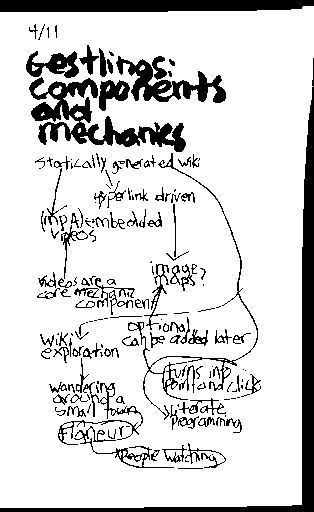 4/11
Gestlings:
components
and
mechanics
statically generated wiki
hyperlink driven
(mp4) embedded
videos
image
maps?
videos are a
core mechanic
component
optional
can be added later
wiki
exploration
turns into
point and click
wandering
around a
small town
literate
programming
flaneur
people watching